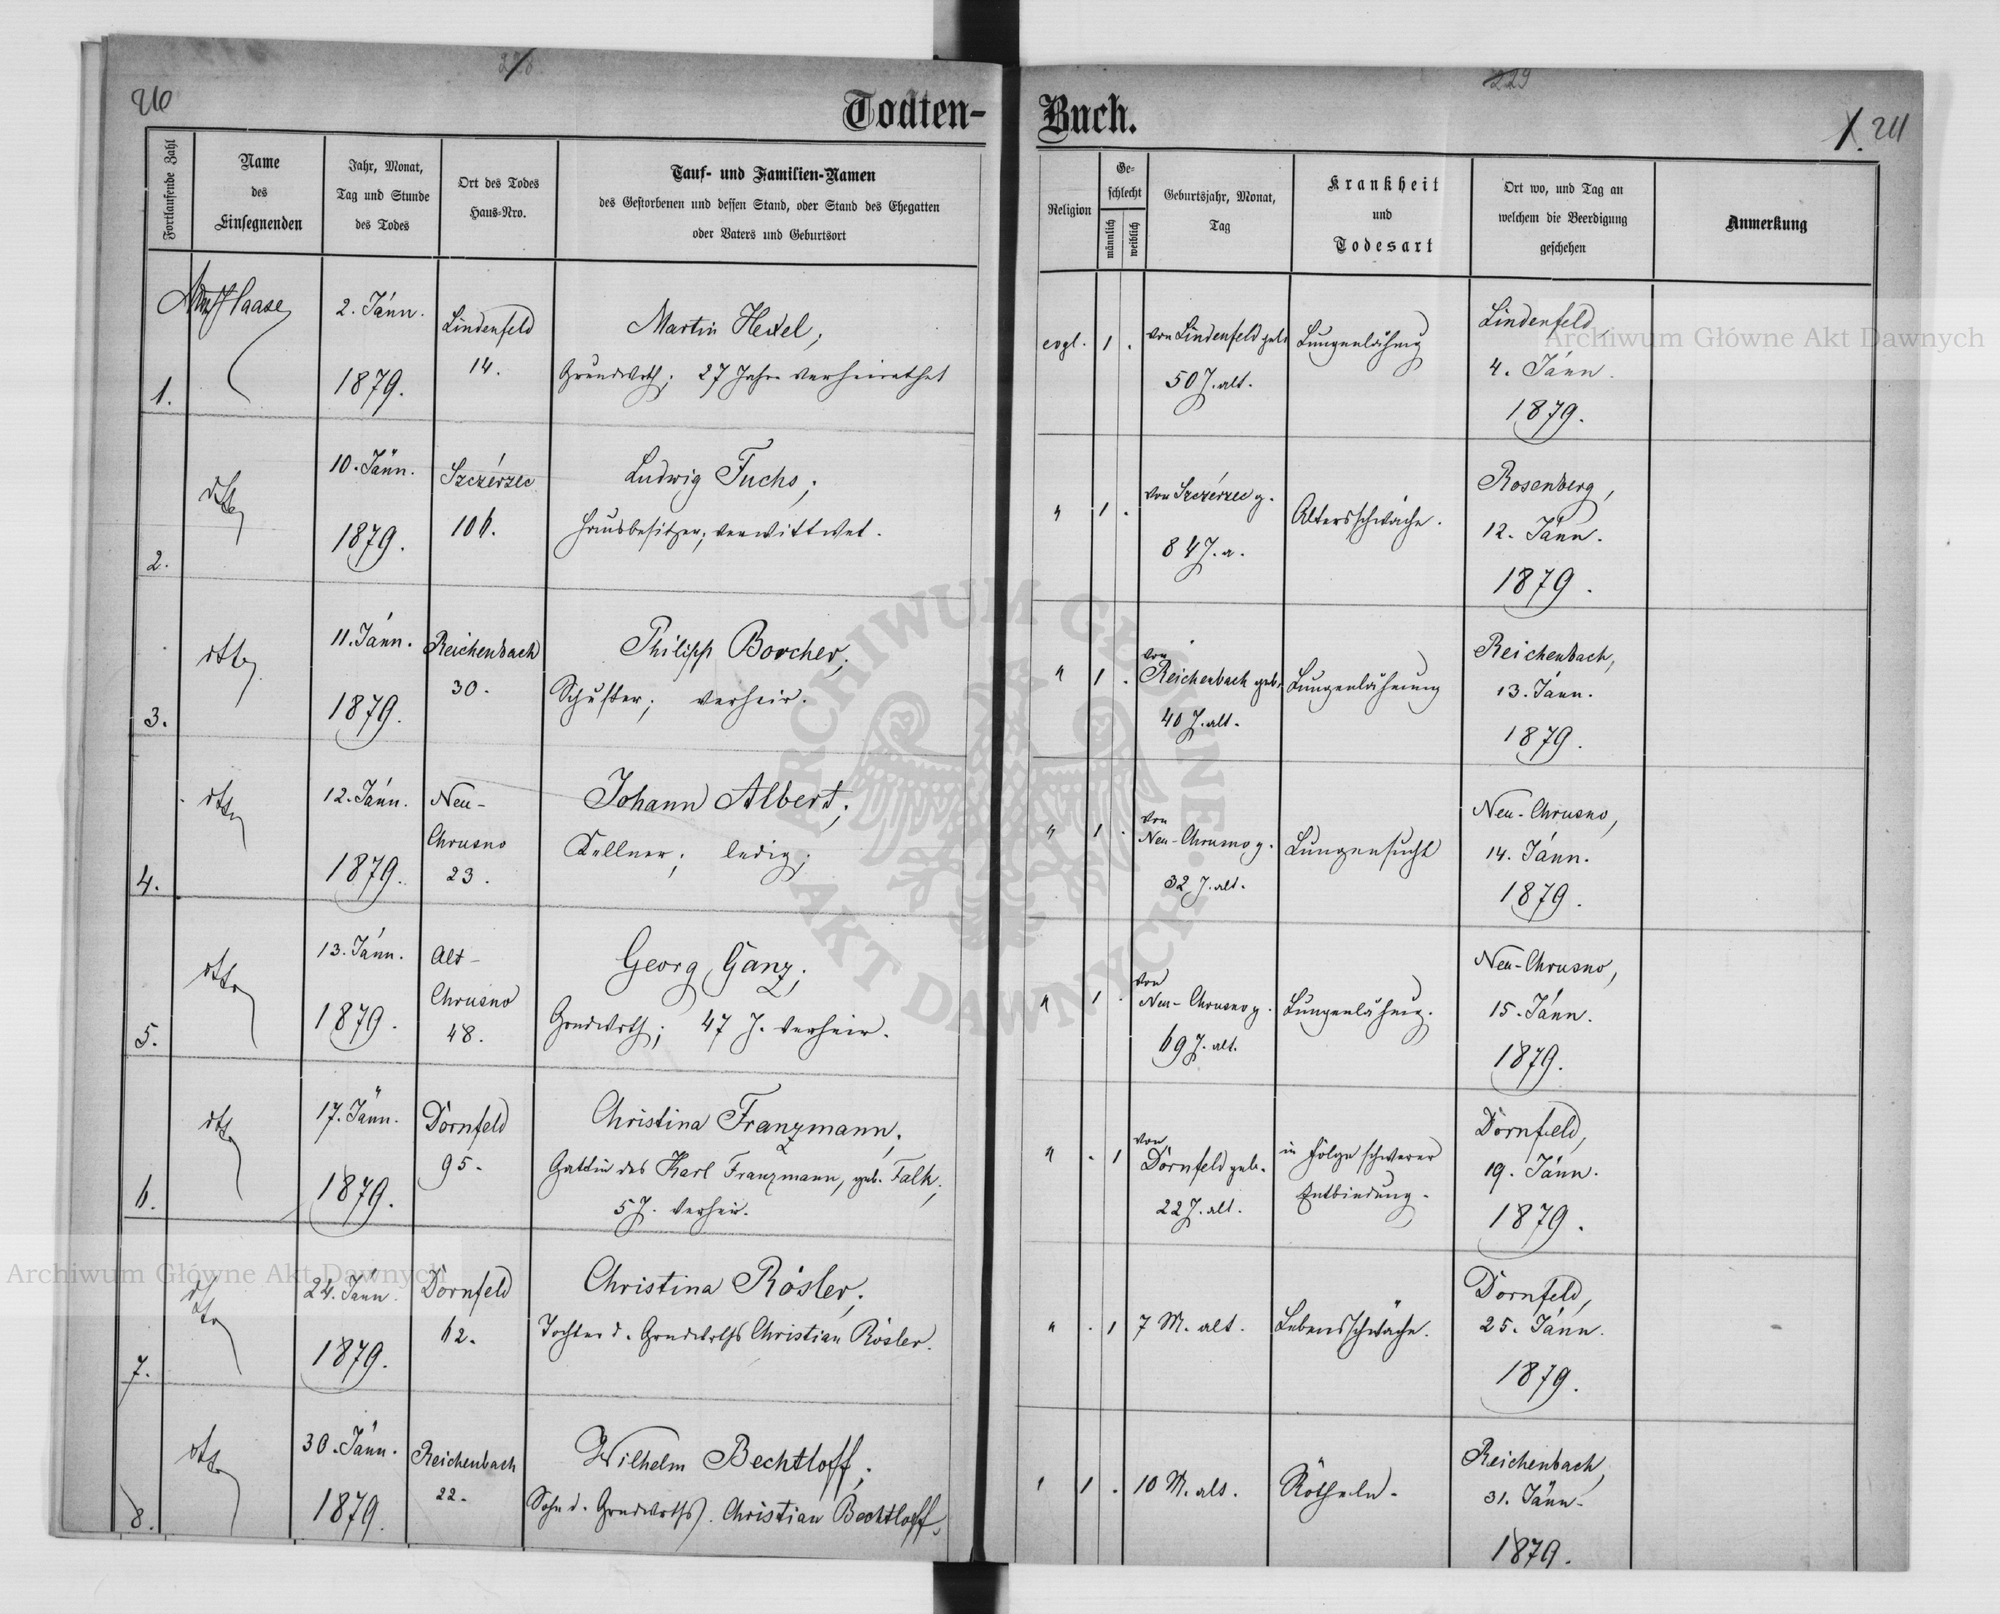 228
229
210
Todten-
Buch.
1. 211
Fortlaufende Zahl
Name
des
Einsegnenden
Jahr, Monat,
Tag und Stunde
des Todes
Ort des Todes
Haus-Nro.
Tauf- und Familien-Namen
des Gestorbenen und dessen Stand, oder Stand des Ehegatten
oder Vaters und Geburtsort
Religion
Ge-
schlecht
männlich
weiblich
Geburtsjahr, Monat,
Tag
Krankheit
und
Todesart
Ort wo, und Tag an
welchem die Beerdigung
geschehen
Anmerkung
1.
Haase
2. Jänn.
1879.
Lindenfeld
14.
Martin Hexel;
Grundwrth; 27 Jahre verheirathet
evgl.
1 .
von Lindenfeld geb.
50 J. alt.
Lungenlähmg
Lindenfeld,
4. Jänn.
1879.
2.
dtto
10. Jänn.
1879.
Szczérzec
106.
Ludwig Fuchs;
Hausbesitzer; verwittwet.
"
1 .
von Szczérzec g.
84 J. a.
Altersschwäche.
Rosenberg,
12. Jänn.
1879.
3.
dtto
11. Jänn.
1879.
Reichenbach
30.
Philipp Borcher;
Schuster; verheir.
"
1 .
von
Reichenbach geb.
40 J. alt.
Lungenlähmung
Reichenbach,
13. Jänn.
1879.
4.
dtto
12. Jänn.
1879.
Neu-
Chrusno
23.
Johann Albert;
Kellner; ledig;
"
1 .
von
Neu-Chrusno g.
32 J. alt.
Lungensucht
Neu-Chrusno,
14. Jänn.
1879.
5.
dtto
13. Jänn.
1879.
Alt-
Chrusno
48.
Georg Ganz;
Grndwrth; 47 J. verheir.
"
1 .
von
Neu-Chrusno g.
69 J. alt.
Lungenlähmg.
Neu-Chrusno,
15. Jänn.
1879.
6.
dtto
17. Jänn.
1879.
Dornfeld
95.
Christina Franzmann;
Gattin des Karl Franzmann, geb. Falk;
5 J. verheir.
"
. 1
von
Dornfeld geb.
22 J. alt.
in Folge schwerer
Entbindung.
Dornfeld,
19. Jänn.
1879.
7.
dtto
24. Jänn.
1879.
Dornfeld
62.
Christina Rösler;
Tochter d. Grndwrths Christian Rösler.
"
. 1
7 M. alt.
Lebensschwäche.
Dornfeld,
25. Jänn.
1879.
8.
dtto
30. Jänn.
1879.
Reichenbach
22.
Wilhelm Bechtloff;
Sohn d. Grndwrths. Christian Bechtloff.
"
1 .
10 M. alt.
Rötheln.
Reichenbach,
31. Jänn.
1879.
Archiwum Główne Akt Dawnych
Archiwum Główne Akt Dawnych
ARCHIWUM GŁÓWNE AKT DAWNYCH